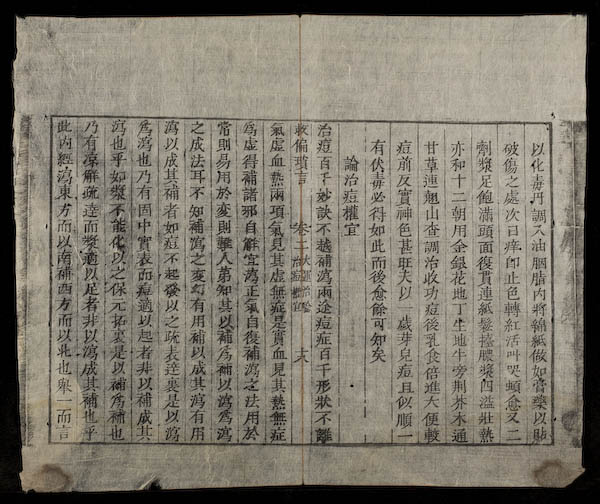 以化毒丹調入油胭脂內將綿紙做如膏藥以貼
破傷之處次日痒卽止色轉紅活叫哭頓愈又二
劑漿足飽滿頭面復貫連紙鬆擡膿漿四溢壯熱
亦和十二朝用金銀花地丁生地牛蒡荆芥木通
甘草連翹山查調治收功痘後乳食倍進大便較
痘前反實神色甚旺夫以一歲芽兒痘且似順一
有伏毒必得如此而後愈餘可知矣
論治痘權宜
治痘百千妙訣不越補瀉兩途痘症百千形狀不離
救偏瑣言
卷二
治痘權宜
氣虛血熱兩項氣見其虛無症是實血見其熱無症
爲虛得補諸邪自解宜瀉正氣自復補瀉之法用於
常則易用於變則難人第知其以補爲補以瀉爲瀉
之成法耳不知補瀉之變幻有用補以成其瀉有用
瀉以成其補者如痘不起發以之疏表達裏是以瀉
爲瀉也乃有固中實表而痘適以起者非以補成其
瀉也乎如漿不能化以之保元托裏是以補爲補也
乃有凉解疏達而漿適以足者非以瀉成其補也乎
此內經瀉東方而以南補西方而以北也舉一而言